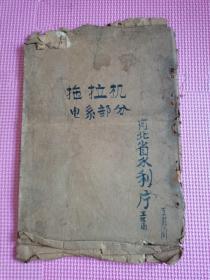 拖拉机
电系部分
河北省水利厅